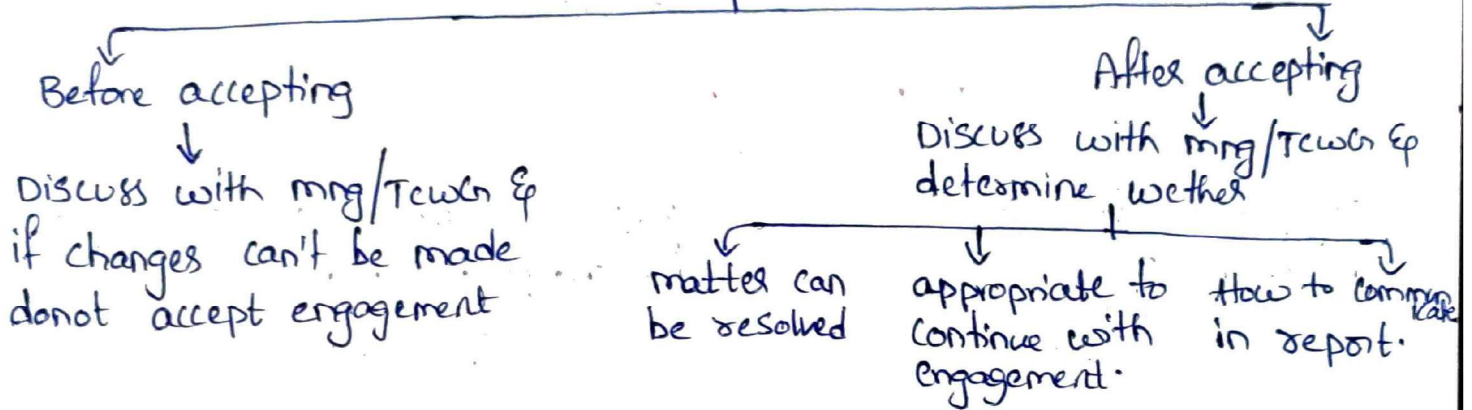 Before accepting
Discuss with mng/TCWG &
if changes can't be made
donot accept engagement
After accepting
Discuss with mng/TCWG &
determine wether
matter can
be resolved
appropriate to
continue with
engagement.
How to communicate
in report.